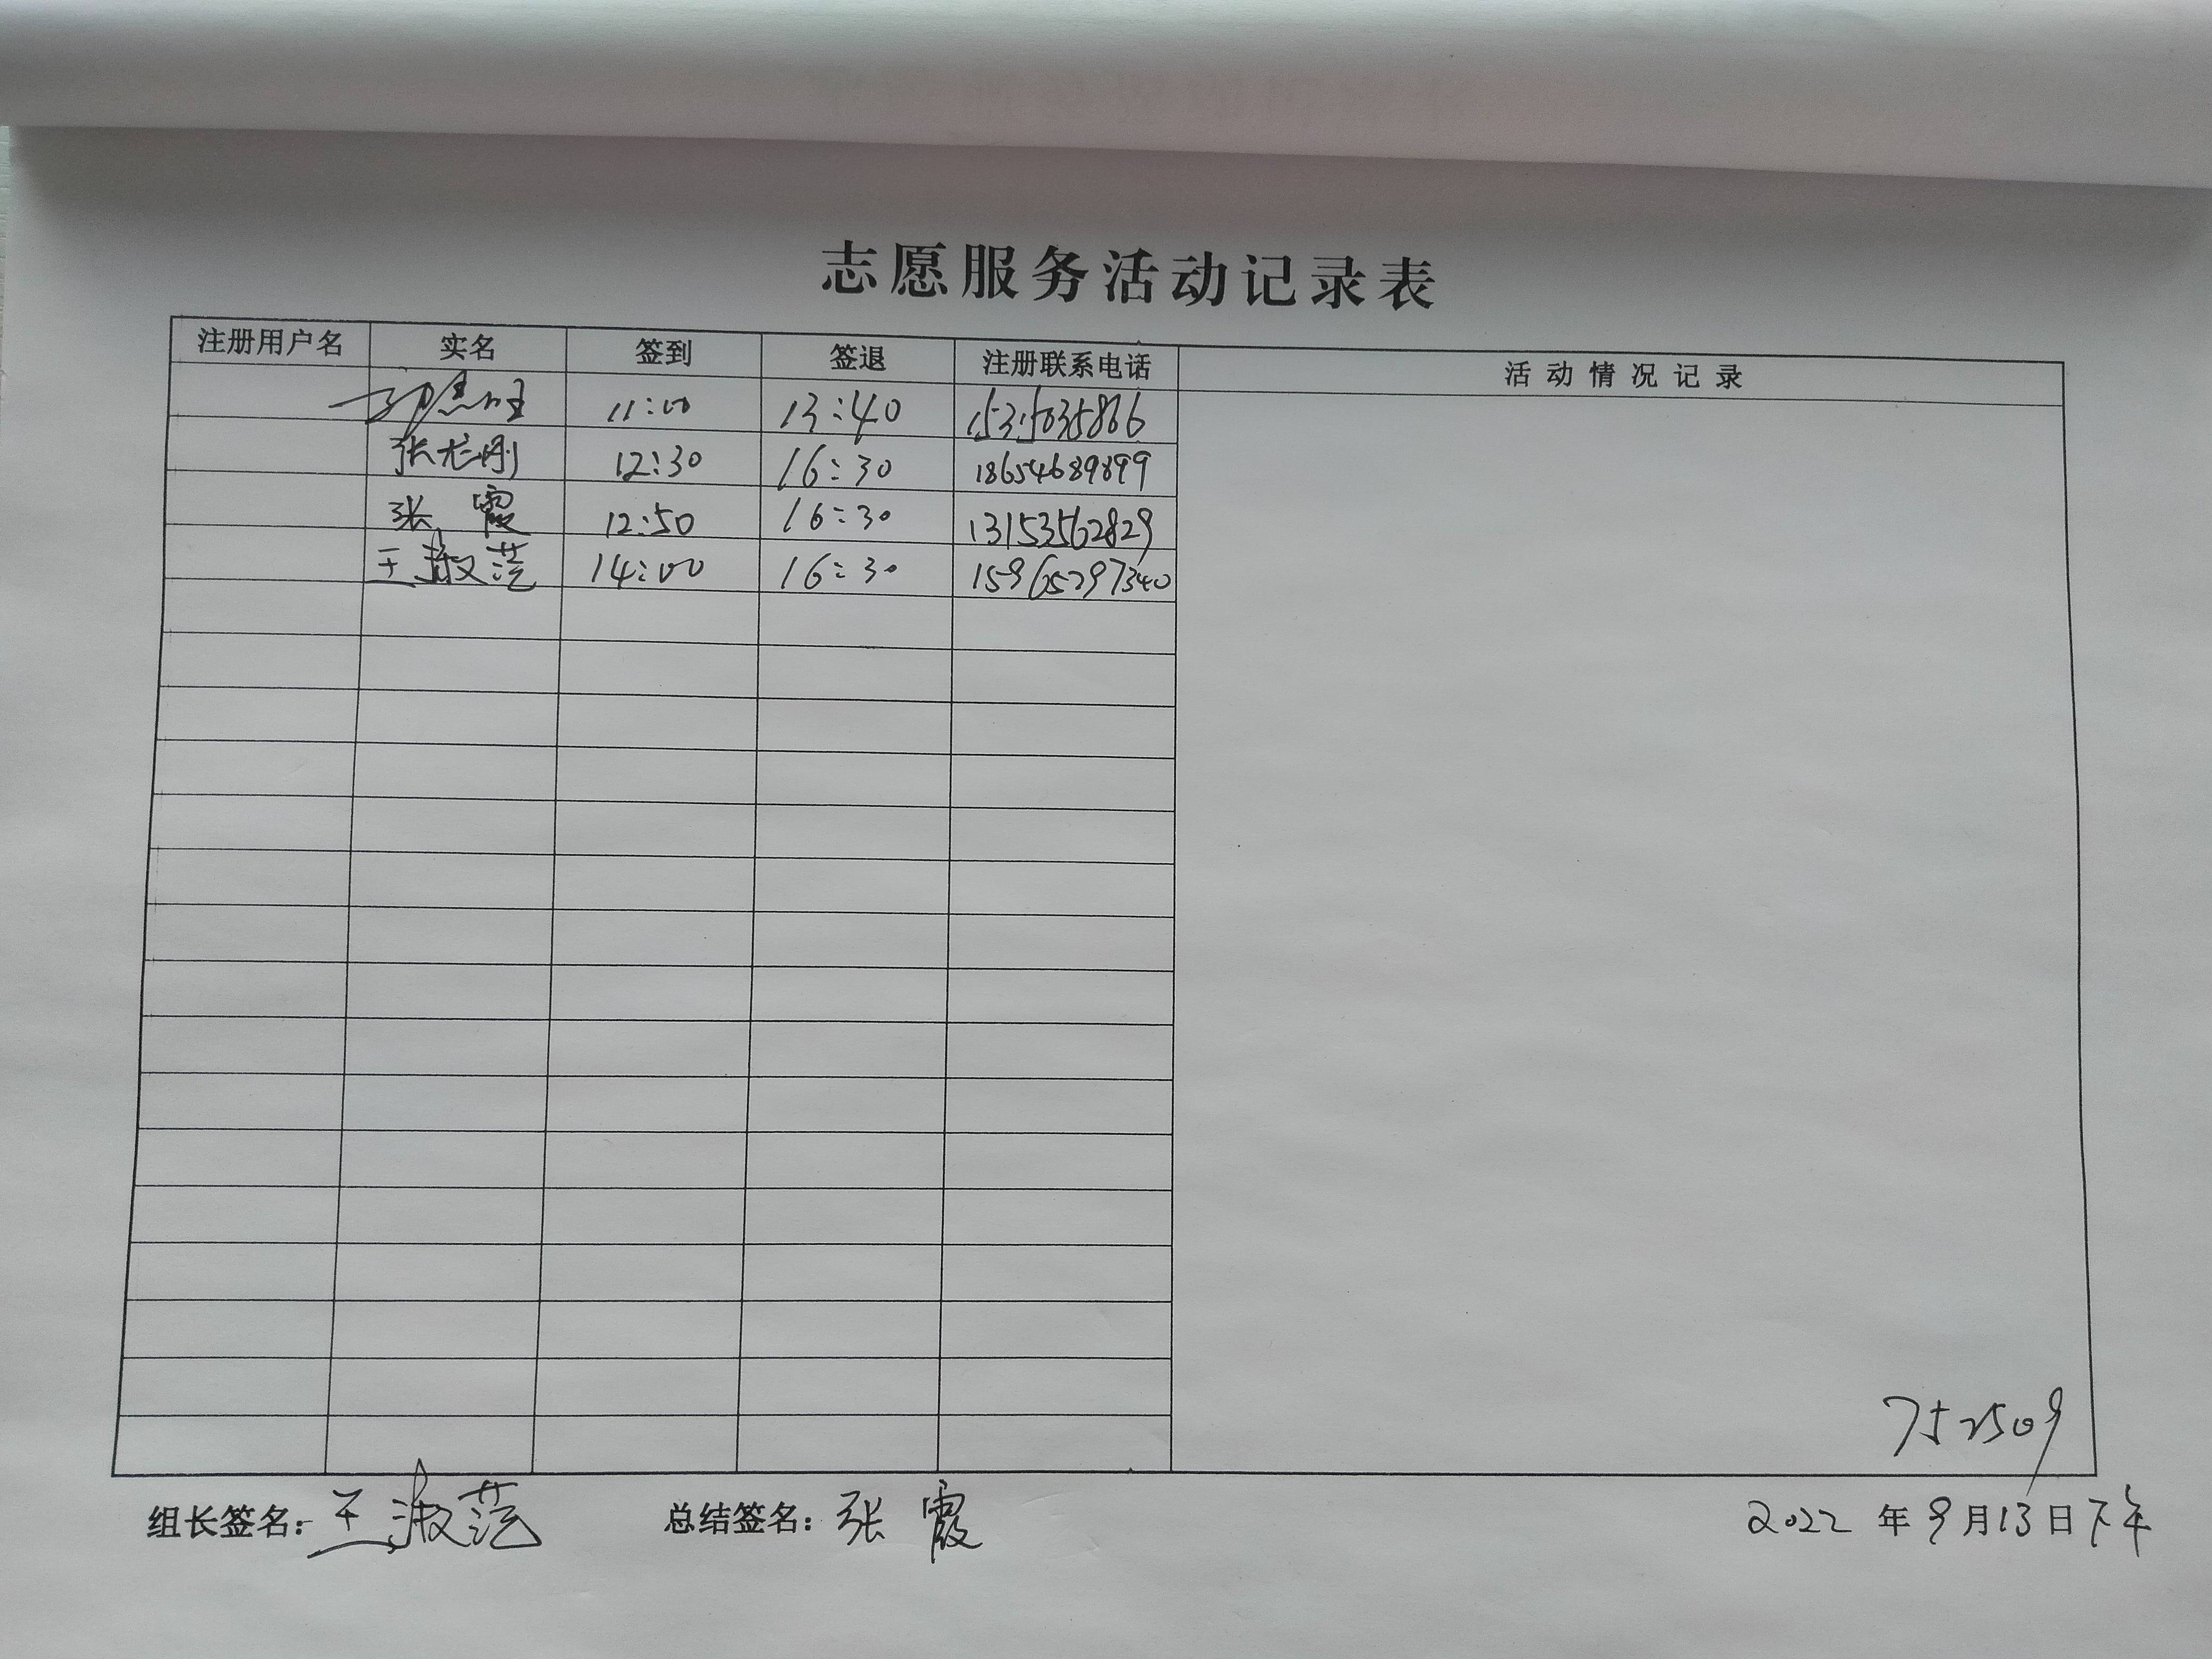 志愿服务活动记录表
注册用户名 实名 签到 签退 注册联系电话 活动情况记录
11:00 13:40
张龙刚 12:30 16:30 18654689899
张霞 12:50 16:30 13153562829
王淑范 14:00 16:30 15965297340
752509
组长签名：王淑范 总结签名：张霞 2022年9月13日下午